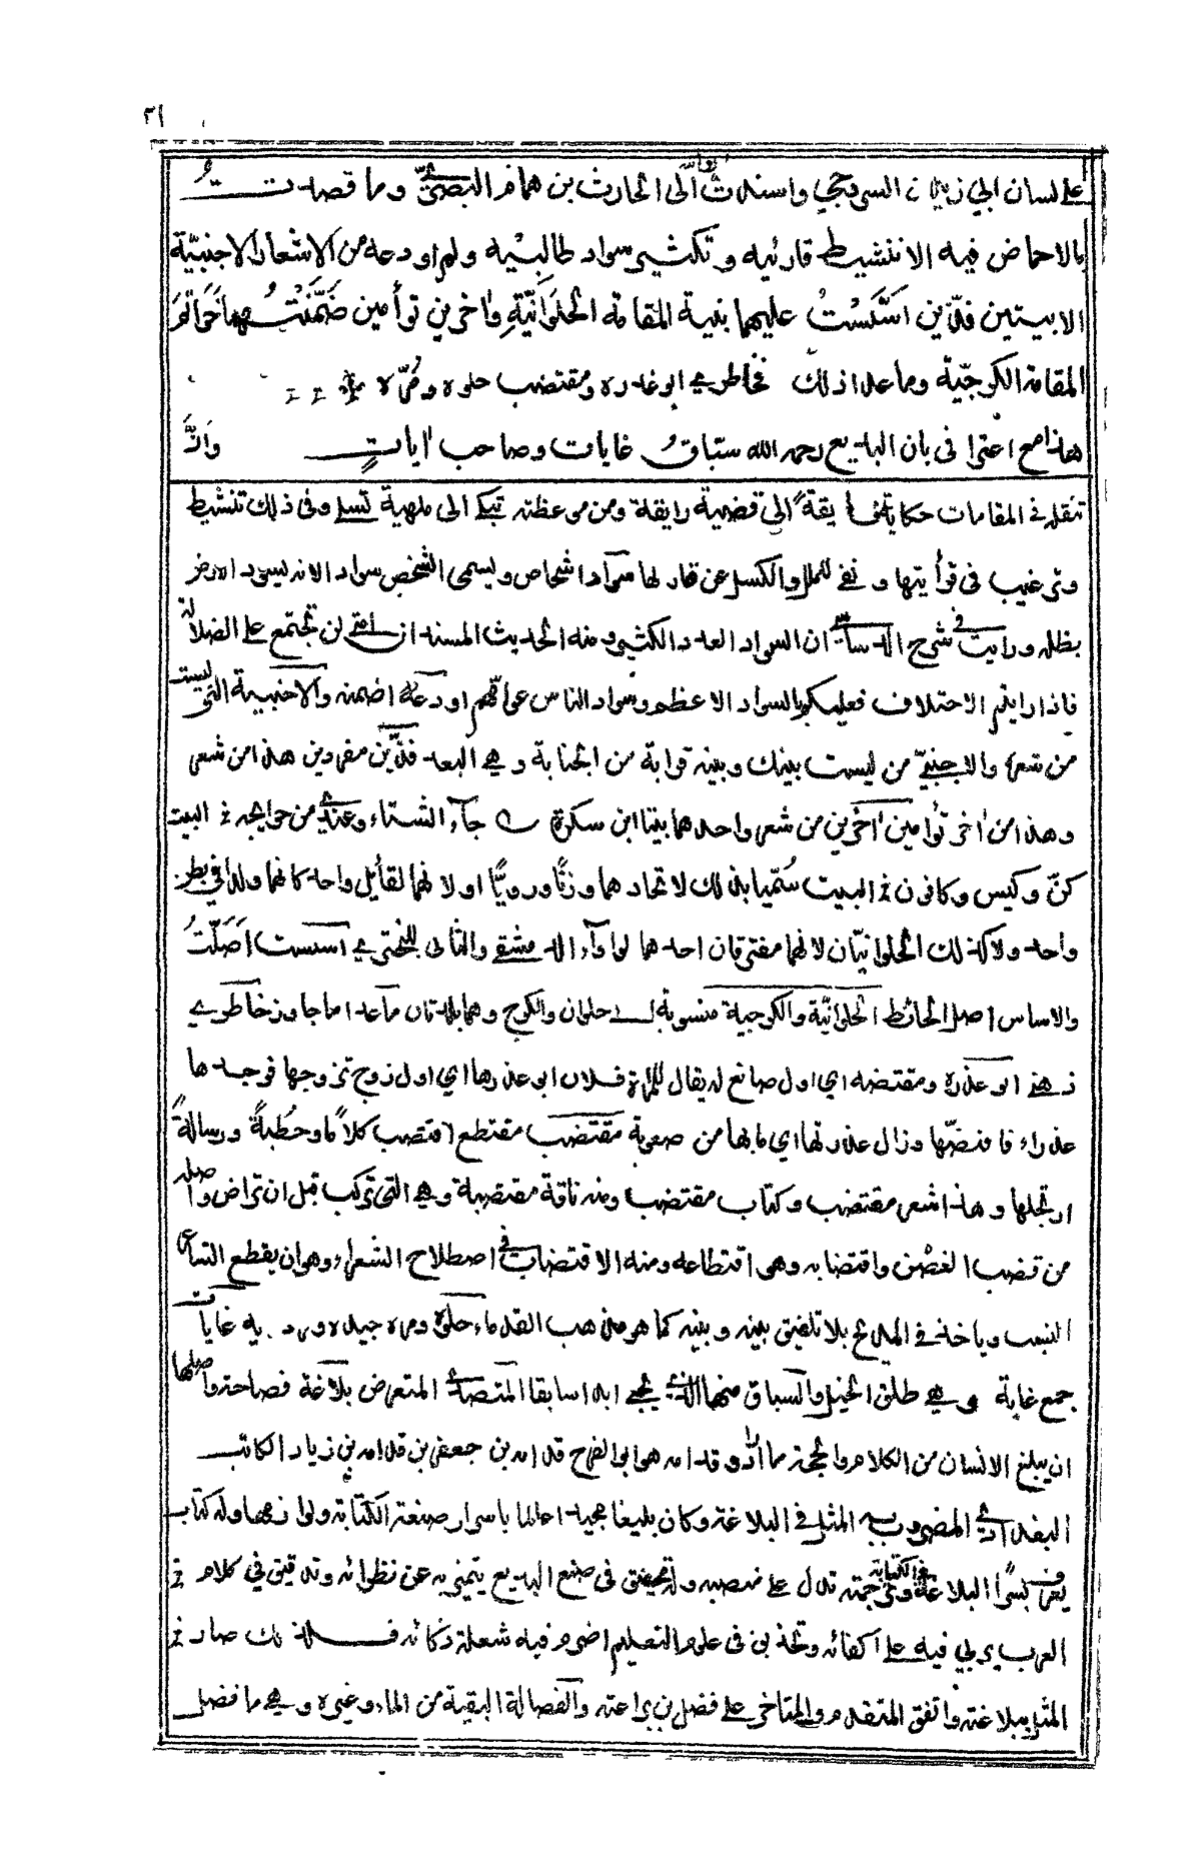 ٢١
على لسان ابي زيد السروجي واسندت روايته الى الحارث بن همام البصري وما قصدت
بالاحماض فيه الا تنشيط قارئيه وتكثير سواد طالبيه ولم اودعه من الاشعار الاجنبيّة
الا بيتين فذّين اسّسْتُ عليهما بنية المقامة الحلوانيّةِ واخرين توأمين ضمّنتُهما خواتم
المقامة الكرجيّة وما عدا ذلك فخاطري ابو عذره ومقتضب حلوه ومُرّه
هذا مع اعترافي بان البديع رحمه الله سبّاق غايات وصاحب ايات وانّ
تنقله في المقامات حكاية الى قضية رايقة ومن موعظة تبكي الى ملهية تسلي وفي ذلك تنشيط
وترغيب في قرأيتها ونفي للملل والكسل عن قار لها سواد اشخاص ويسمى الشخص سواد الانه يسود الارض
بظله ورايت في شرح ان السواد العدد الكثير ومنه الحديث المسند ان امتي لن تجتمع على الضلالة
فاذا رايتم الاختلاف فعليكم بالسواد الاعظم وسواد الناس عوامّهم اودعه اضمنه والاجنبية التي ليست
من شعره والاجنبيّ من ليست بينك وبينه قرابة من الجنابة وهي البعد فذّين مفردين هذا من شعر
وهذا من اخر توأمين اخرين من شعر واحد هما بيتا ابن سكرة جآء الشتاء وعندي من حوايجه في البيت
كنّ وكيس وكانون في البيت سُمّيا بذلك لاتحادهما وزنًا ورويًّا او لانهما لقائل واحد كانهما ولدا في بطن
واحد ولا كذلك الحلوانيّان لانهما مفترقان احدهما لواوآء الدمشقي والثاني للبحتري اسست اصّلتُ
والاساس اصل الحائط الحلوانيّة والكرجية منسوبة الى حلوان والكرج وهما بلدتان ماعدا ما جاوز خاطري
ذهني ابو عذره ومقتضبه اي اول صانع له يقال للمراة فلان ابو عذرها اي اول زوج تزوجها فوجدها
عذراء فافتضّها وزال عذرتها اي مابها من صعوبة مقتضب مقتطع اقتضب كلاًما وخُطبةً ورسالةً
ارتجلها وهذا شعر مقتضب وكتاب مقتضب ومنه ناقة مقتضبة وهي التي تركب قبل ان تراض واصله
من قضب الغصن واقتضابه وهو اقتطاعه ومنه الاقتضاب في اصطلاح الشعراء وهو ان يقطع الشاعر
النسيب وياخذ في المديح بلا تلفيق بينه وبينه كما هو مذهب القدماء حلوه ومره جيده ورديه غايات
جمع غاية وهي طلق الخيل والسباق منها الذي يجيء ابدا سابقا المتصدي المتعرض بلاغة فصاحة واصلها
ان يبلغ الانسان من الكلام والحجة ما اراد وقدامه هو ابو الفرج قدامه بن جعفر بن قدامه بن زياد الكاتب
البغدادي المضروب به المثل في البلاغة وكان بليغا مجيدا عالما باسرار صنعة الكتابة ولوازمها وله كتاب
يعرف بسرّ البلاغة في الكتابة وترجمته تدل على منصبه وله تحقيق في صنع البديع يتميز به عن نظرائه وتدقيق في كلام
العرب يربي فيه على اكفائه وتحذيق في علوم التعليم اضرم فيه شعلة ذكائه فلذلك صار في
المثل ببلاغته واتفق المتقدم والمتاخر على فضل براعته والفضالة البقية من الماء وغيره وهي ما فضل